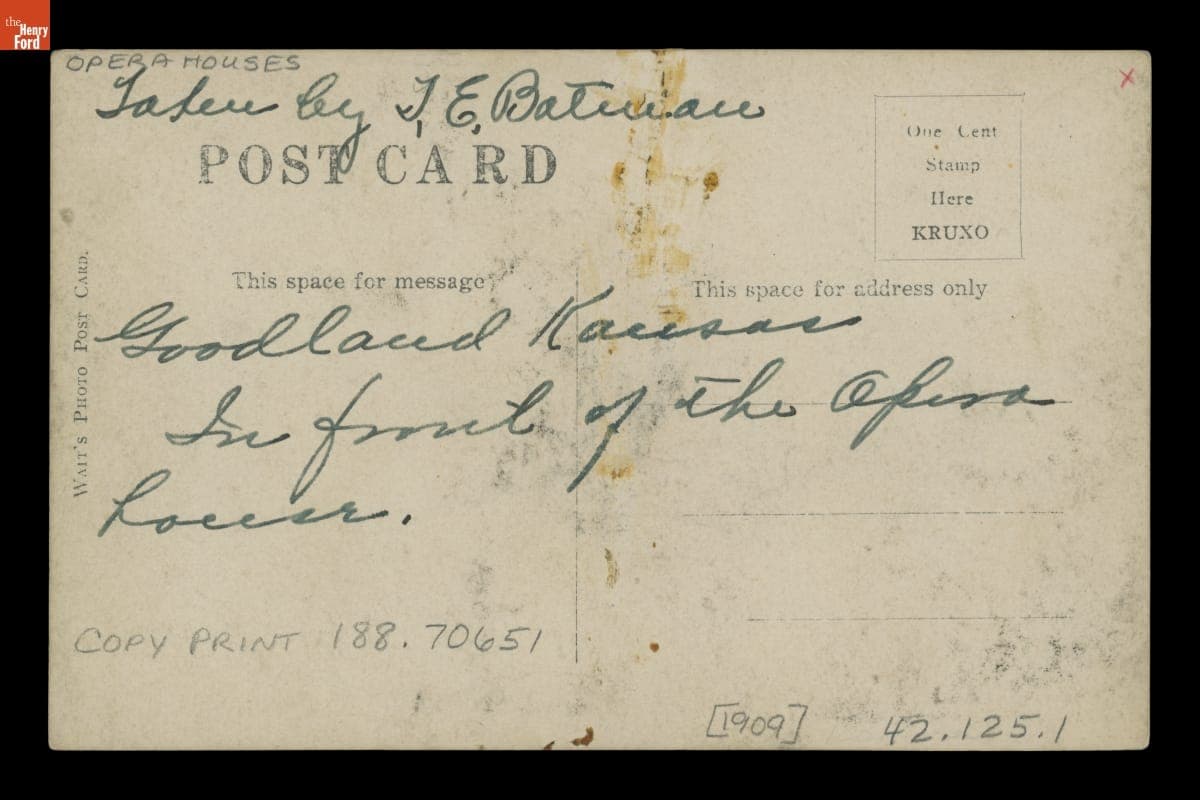 the
Henry
Ford
OPERA HOUSES
Taken by T. E. Bateman
POST CARD
One Cent
Stamp
Here
KRUXO
WAIT'S PHOTO POST CARD.
This space for message
This space for address only
Goodland Kansas
In front of the Opera
house.
COPY PRINT 188.70651
[1909] 42.125.1